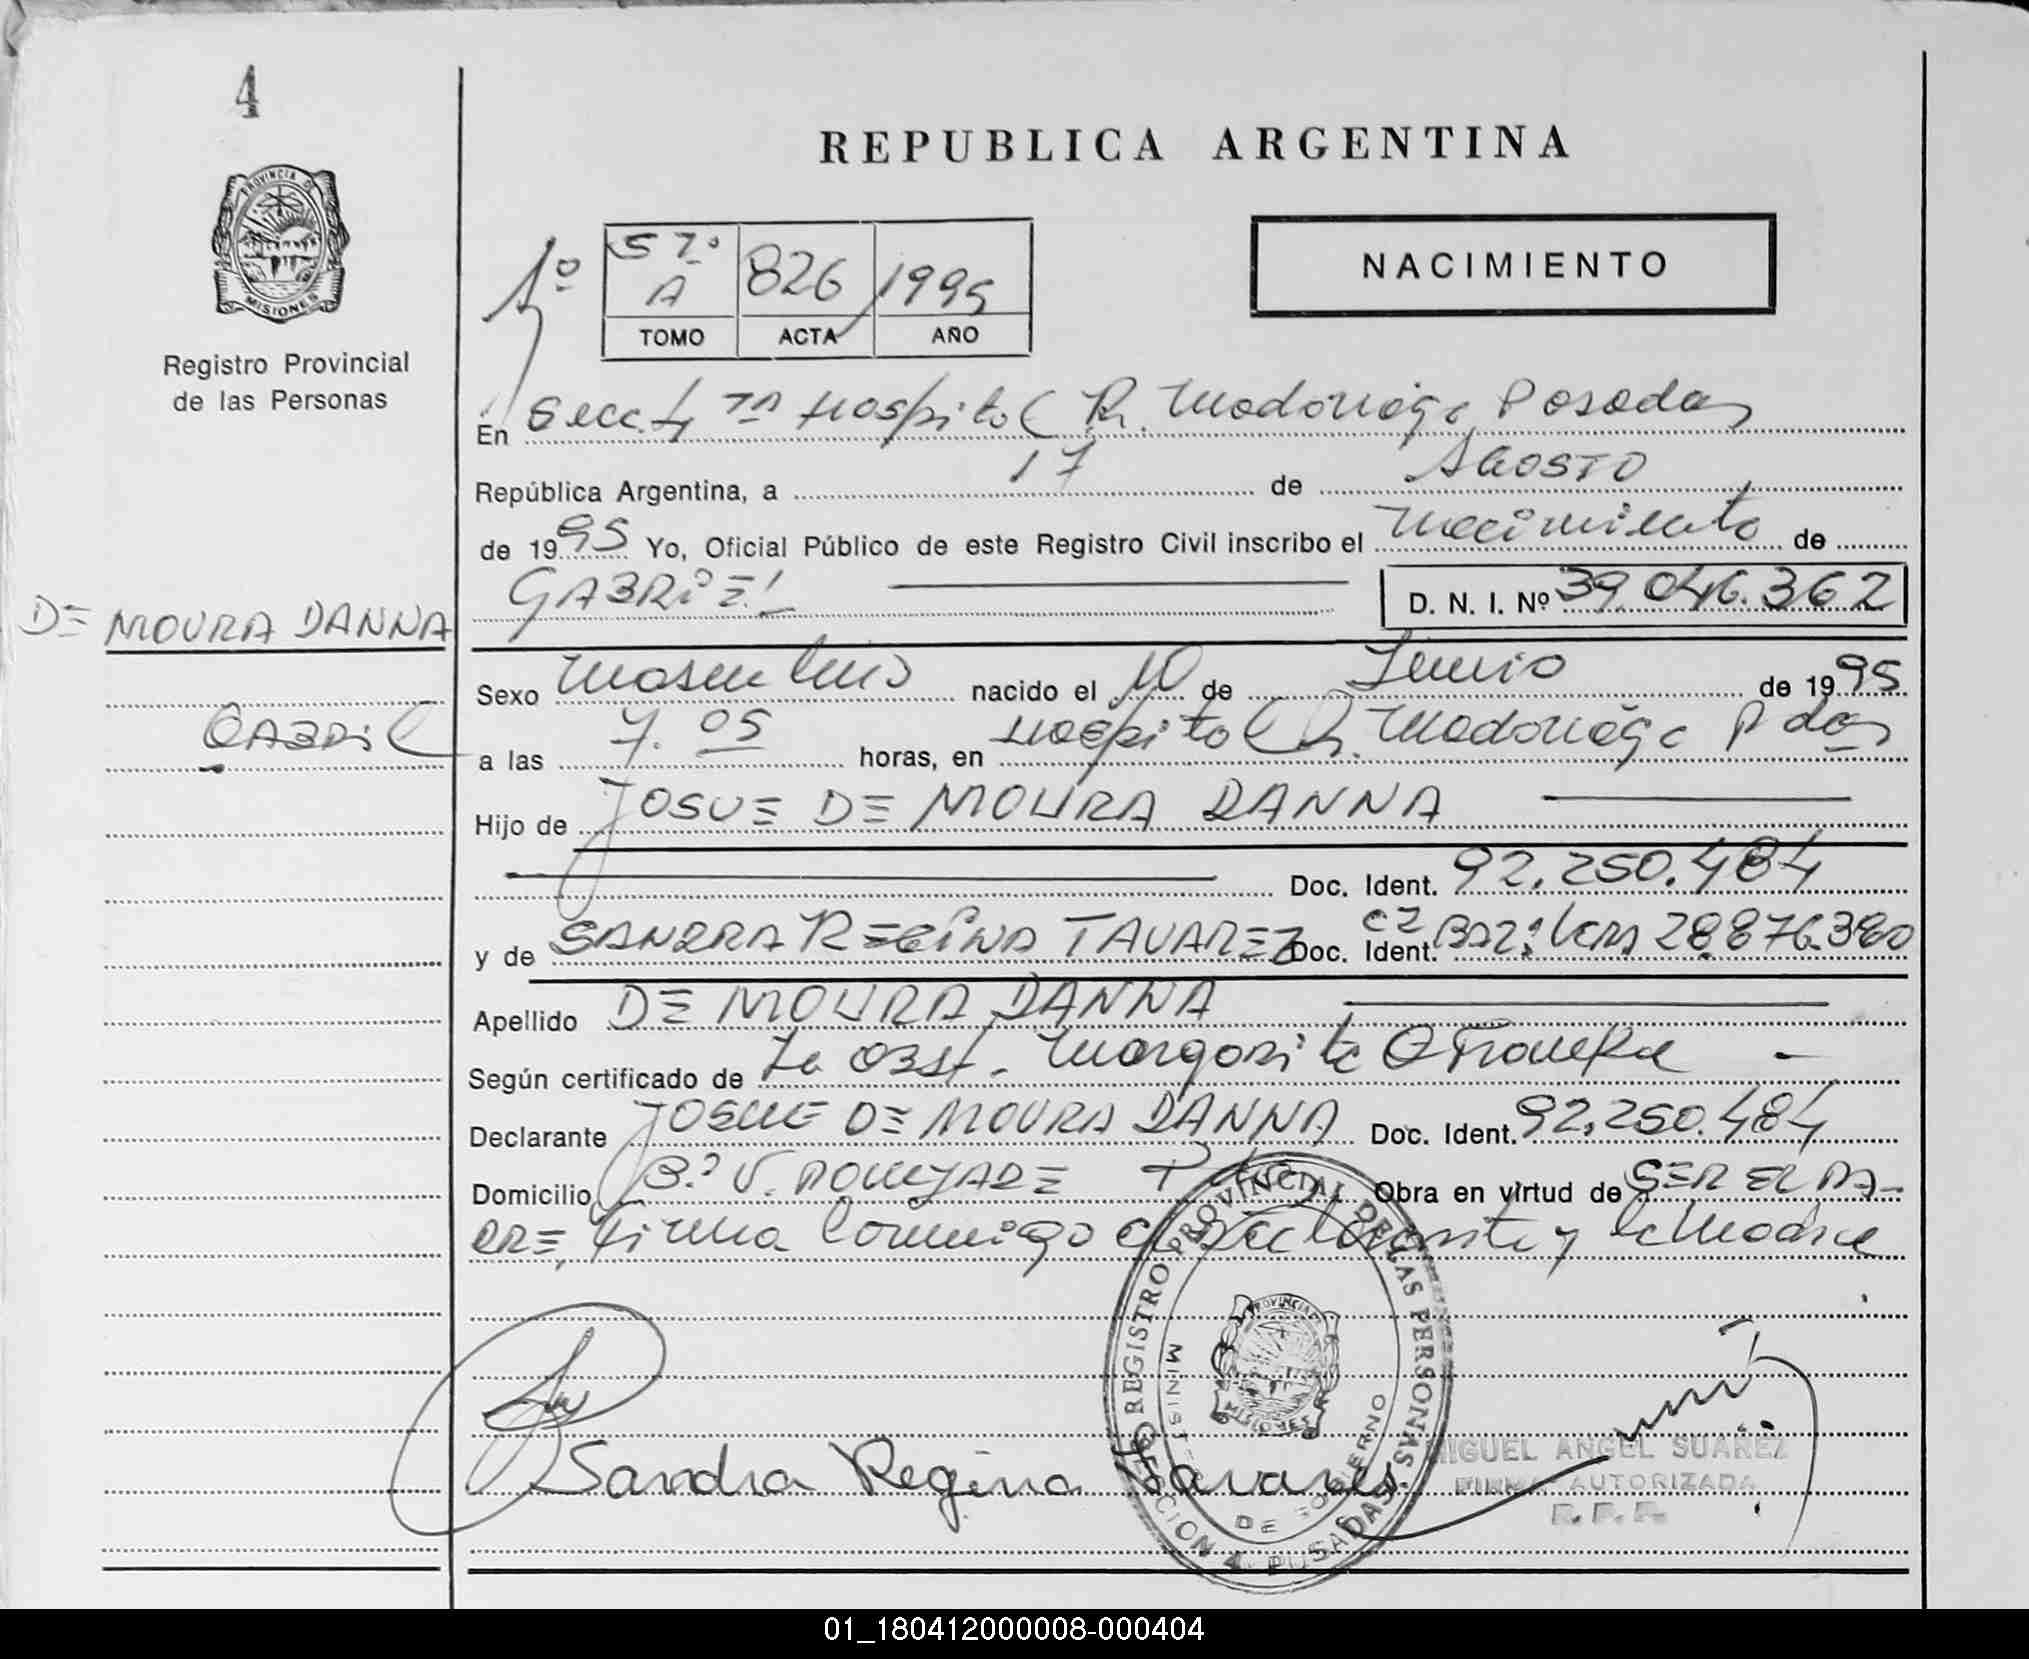 4
REPUBLICA ARGENTINA
PROVINCIA DE
MISIONES
Registro Provincial
de las Personas
1º
57º
A 826 1995
TOMO ACTA AÑO
NACIMIENTO
En Secc. 4 7A Hospital R. Madariaga Posadas
República Argentina, a 17 de AGOSTO
de 1995 Yo, Oficial Público de este Registro Civil inscribo el nacimiento de
GABRIEL D. N. I. Nº 39.046.362
DE MOURA DANNA
Sexo masculino nacido el 10 de Junio de 1995
GABRIEL
a las 7.05 horas, en Hospital R. Madariaga Pdas
Hijo de JOSUE DE MOURA DANNA
Doc. Ident. 92.250.484
y de SANDRA REGINA TAVAREZ Doc. Ident. CI Brasilera 28.876.380
Apellido DE MOURA DANNA
Según certificado de la OBST. Margarita
Declarante JOSUE DE MOURA DANNA Doc. Ident. 92.250.484
Domicilio Bº V. Obra en virtud de SER EL PA-
DRE, firma conmigo el declarante y la Madre
REGISTRO PROVINCIAL DE LAS PERSONAS
MINISTERIO DE GOBIERNO
PROVINCIA DE
MISIONES
SECCION 4 POSADAS
Sandra Regina Tavares
MIGUEL ANGEL SUAREZ
FIRMA AUTORIZADA
R. P. P.
01_180412000008-000404